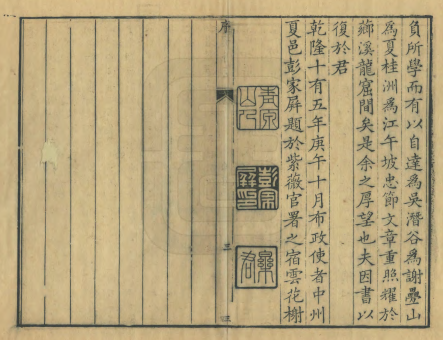 負所學而有以自達為吳潛谷為謝疊山
為夏桂洲為江午坡忠節文章重照耀於
薌溪龍窟間矣是余之厚望也夫因書以
復於君
乾隆十有五年庚午十月布政使者中州
夏邑彭家屏題於紫薇官署之宿雲花榭
青原山人
彭家屏印
樂君
序
三
三